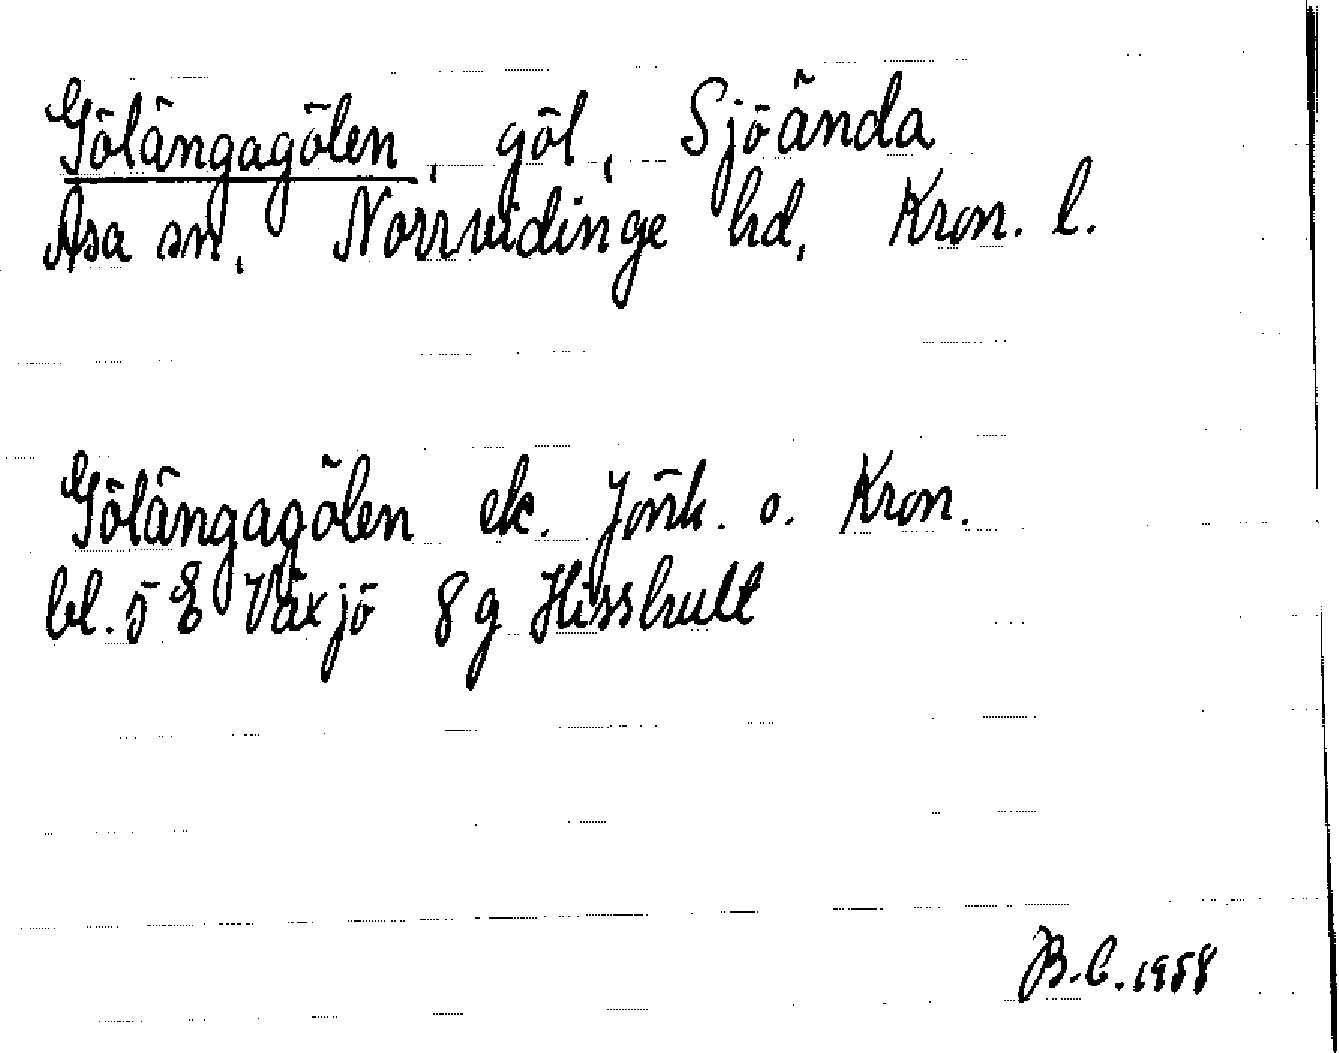 Gölängagölen, göl, Sjöända
Asa sn, Norrvidinge hd, Kron. l.
Gölängagölen ek. Jönk. o. Kron.
bl. 5 E Växjö 8g Hisshult
B.C. 1958